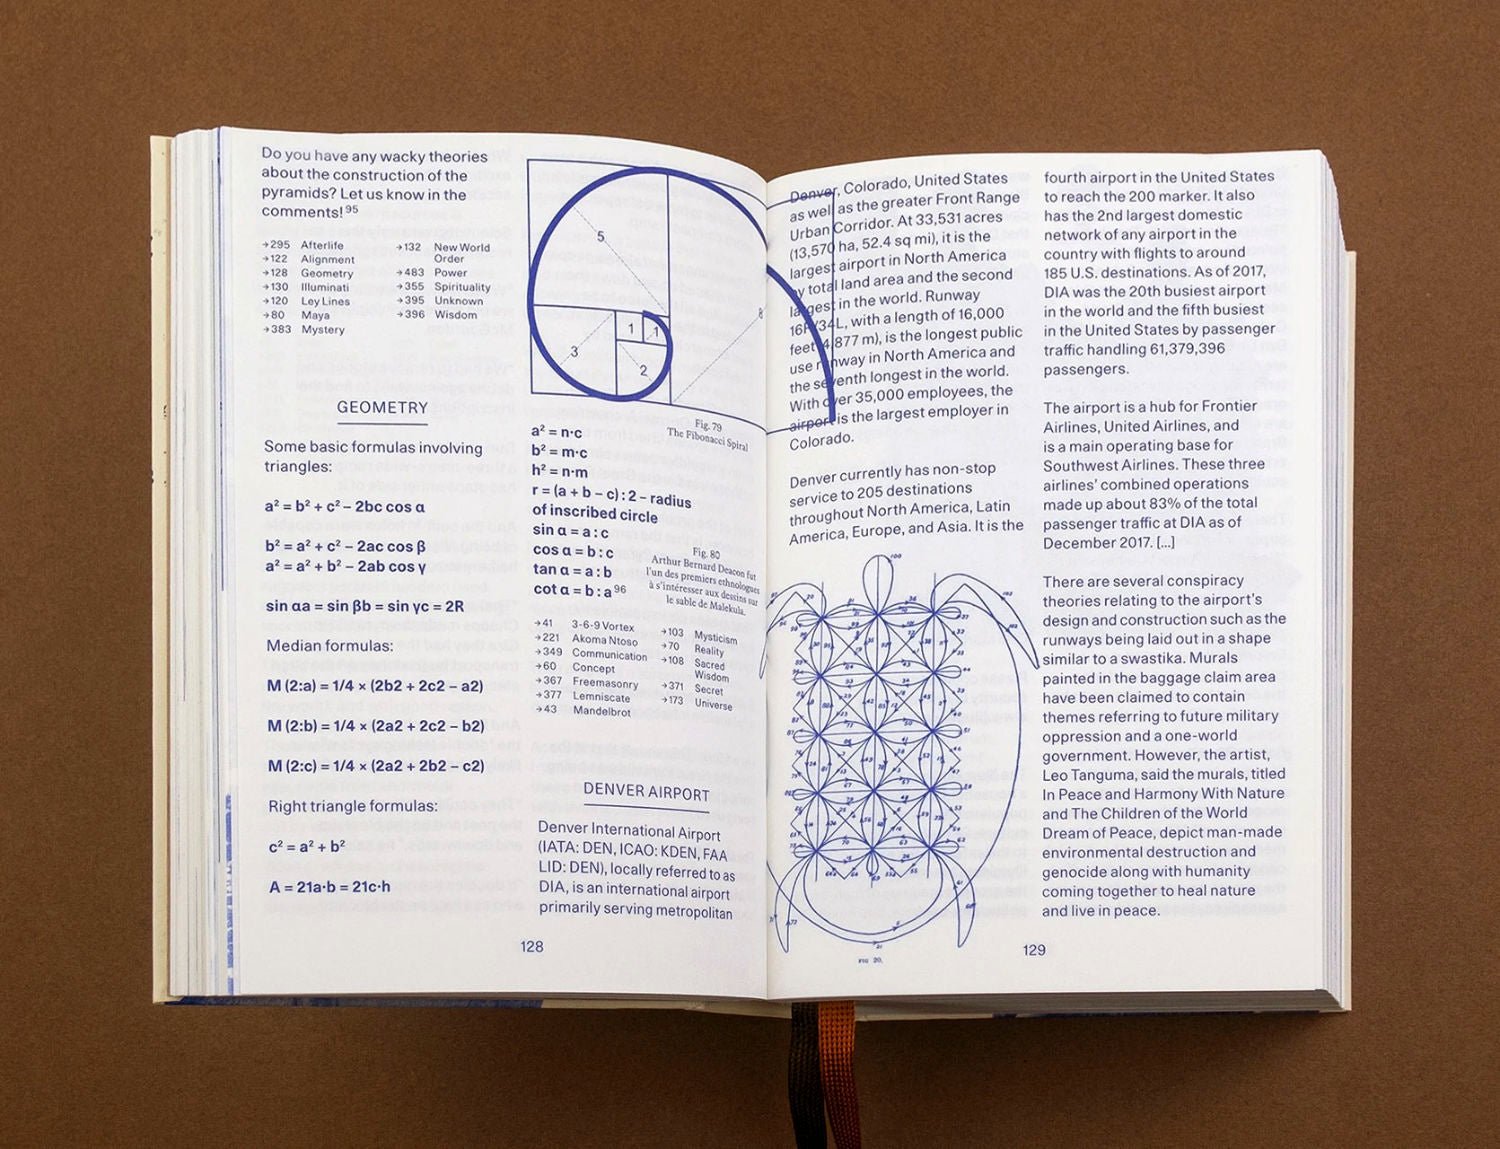 Do you have any wacky theories
about the construction of the
pyramids? Let us know in the
comments!⁹⁵
→295 Afterlife
→122 Alignment
→128 Geometry
→130 Illuminati
→120 Ley Lines
→80 Maya
→383 Mystery
→132 New World
Order
→483 Power
→355 Spirituality
→395 Unknown
→396 Wisdom
GEOMETRY
Some basic formulas involving
triangles:
a² = b² + c² – 2bc cos α
b² = a² + c² – 2ac cos β
a² = a² + b² – 2ab cos γ
sin αa = sin βb = sin γc = 2R
Median formulas:
M (2:a) = 1/4 × (2b2 + 2c2 – a2)
M (2:b) = 1/4 × (2a2 + 2c2 – b2)
M (2:c) = 1/4 × (2a2 + 2b2 – c2)
Right triangle formulas:
c² = a² + b²
A = 21a·b = 21c·h
5
8
1
1
3
2
Fig. 79
The Fibonacci Spiral
a² = n·c
b² = m·c
h² = n·m
r = (a + b – c) : 2 – radius
of inscribed circle
sin α = a : c
cos α = b : c
tan α = a : b
cot α = b : a⁹⁶
Fig. 80
Arthur Bernard Deacon fut
l'un des premiers ethnologues
à s'intéresser aux dessins sur
le sable de Malekula.
→41 3-6-9 Vortex
→221 Akoma Ntoso
→349 Communication
→60 Concept
→367 Freemasonry
→377 Lemniscate
→43 Mandelbrot
→103 Mysticism
→70 Reality
→108 Sacred
Wisdom
→371 Secret
→173 Universe
DENVER AIRPORT
Denver International Airport
(IATA: DEN, ICAO: KDEN, FAA
LID: DEN), locally referred to as
DIA, is an international airport
primarily serving metropolitan
128
Denver, Colorado, United States
as well as the greater Front Range
Urban Corridor. At 33,531 acres
(13,570 ha, 52.4 sq mi), it is the
largest airport in North America
by total land area and the second
largest in the world. Runway
16R/34L, with a length of 16,000
feet (4,877 m), is the longest public
use runway in North America and
the seventh longest in the world.
With over 35,000 employees, the
airport is the largest employer in
Colorado.
Denver currently has non-stop
service to 205 destinations
throughout North America, Latin
America, Europe, and Asia. It is the
FIG 20.
fourth airport in the United States
to reach the 200 marker. It also
has the 2nd largest domestic
network of any airport in the
country with flights to around
185 U.S. destinations. As of 2017,
DIA was the 20th busiest airport
in the world and the fifth busiest
in the United States by passenger
traffic handling 61,379,396
passengers.
The airport is a hub for Frontier
Airlines, United Airlines, and
is a main operating base for
Southwest Airlines. These three
airlines' combined operations
made up about 83% of the total
passenger traffic at DIA as of
December 2017. [...]
There are several conspiracy
theories relating to the airport's
design and construction such as the
runways being laid out in a shape
similar to a swastika. Murals
painted in the baggage claim area
have been claimed to contain
themes referring to future military
oppression and a one-world
government. However, the artist,
Leo Tanguma, said the murals, titled
In Peace and Harmony With Nature
and The Children of the World
Dream of Peace, depict man-made
environmental destruction and
genocide along with humanity
coming together to heal nature
and live in peace.
129